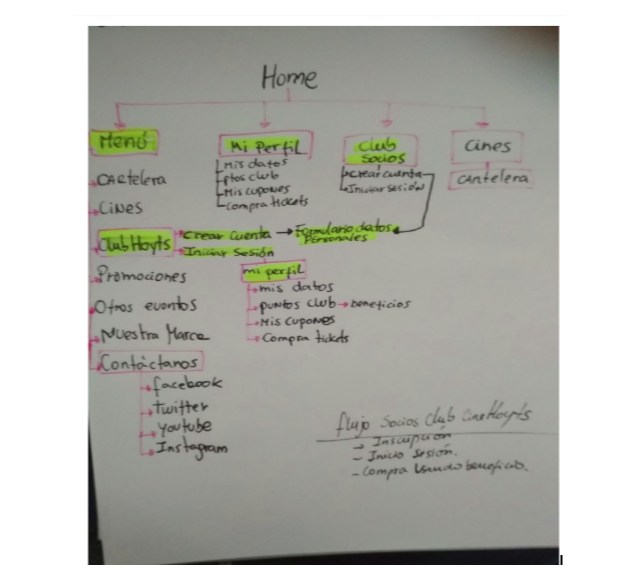 Home
Menú
Mi Perfil
Club
Socios
Cines
Mis datos
ptos club
Mis cupones
Compra tickets
Crear cuenta
Iniciar sesión
Cartelera
Cartelera
Cines
Club Hoyts
Crear Cuenta
Formulario datos
Personales
Iniciar Sesión
Promociones
mi perfil
mis datos
Otros eventos
puntos club beneficios
Mis cupones
Nuestra Marca
Compra tickets
Contáctanos
facebook
twitter
youtube
Instagram
flujo Socios Club CineHoyts
Inscripción
- Inicio Sesión.
- Compra usando beneficio.